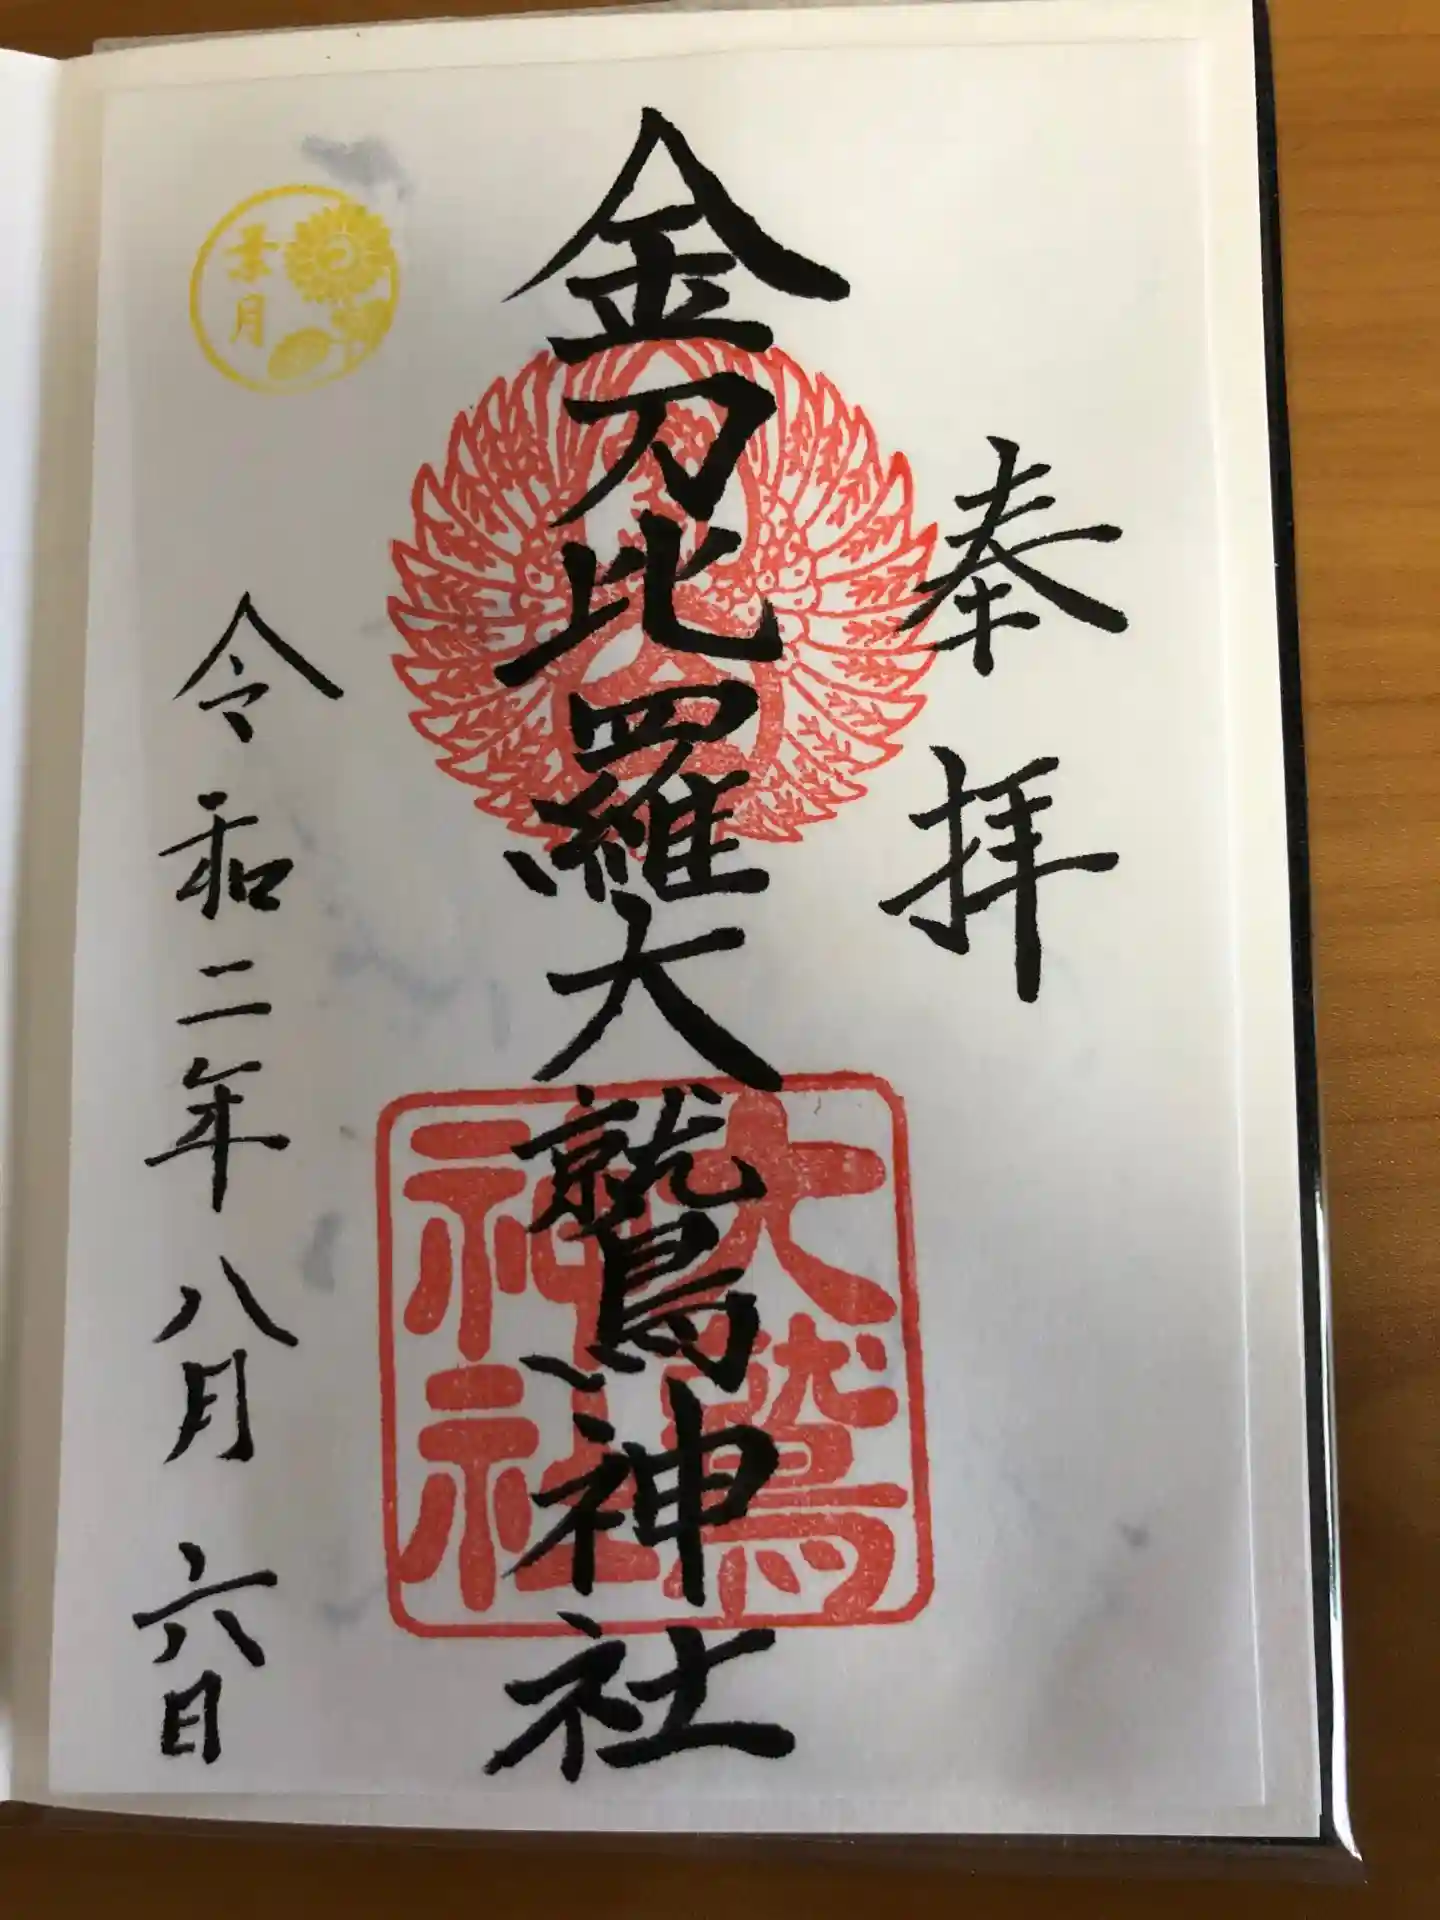 奉拝
金刀比羅大鷲神社
大鷲
神社
葉月
令和二年八月六日